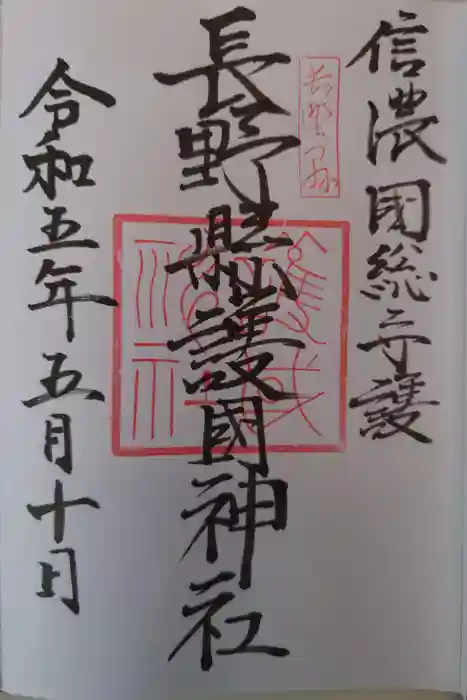 信濃國総守護
長野縣護國神社
令和五年五月十日